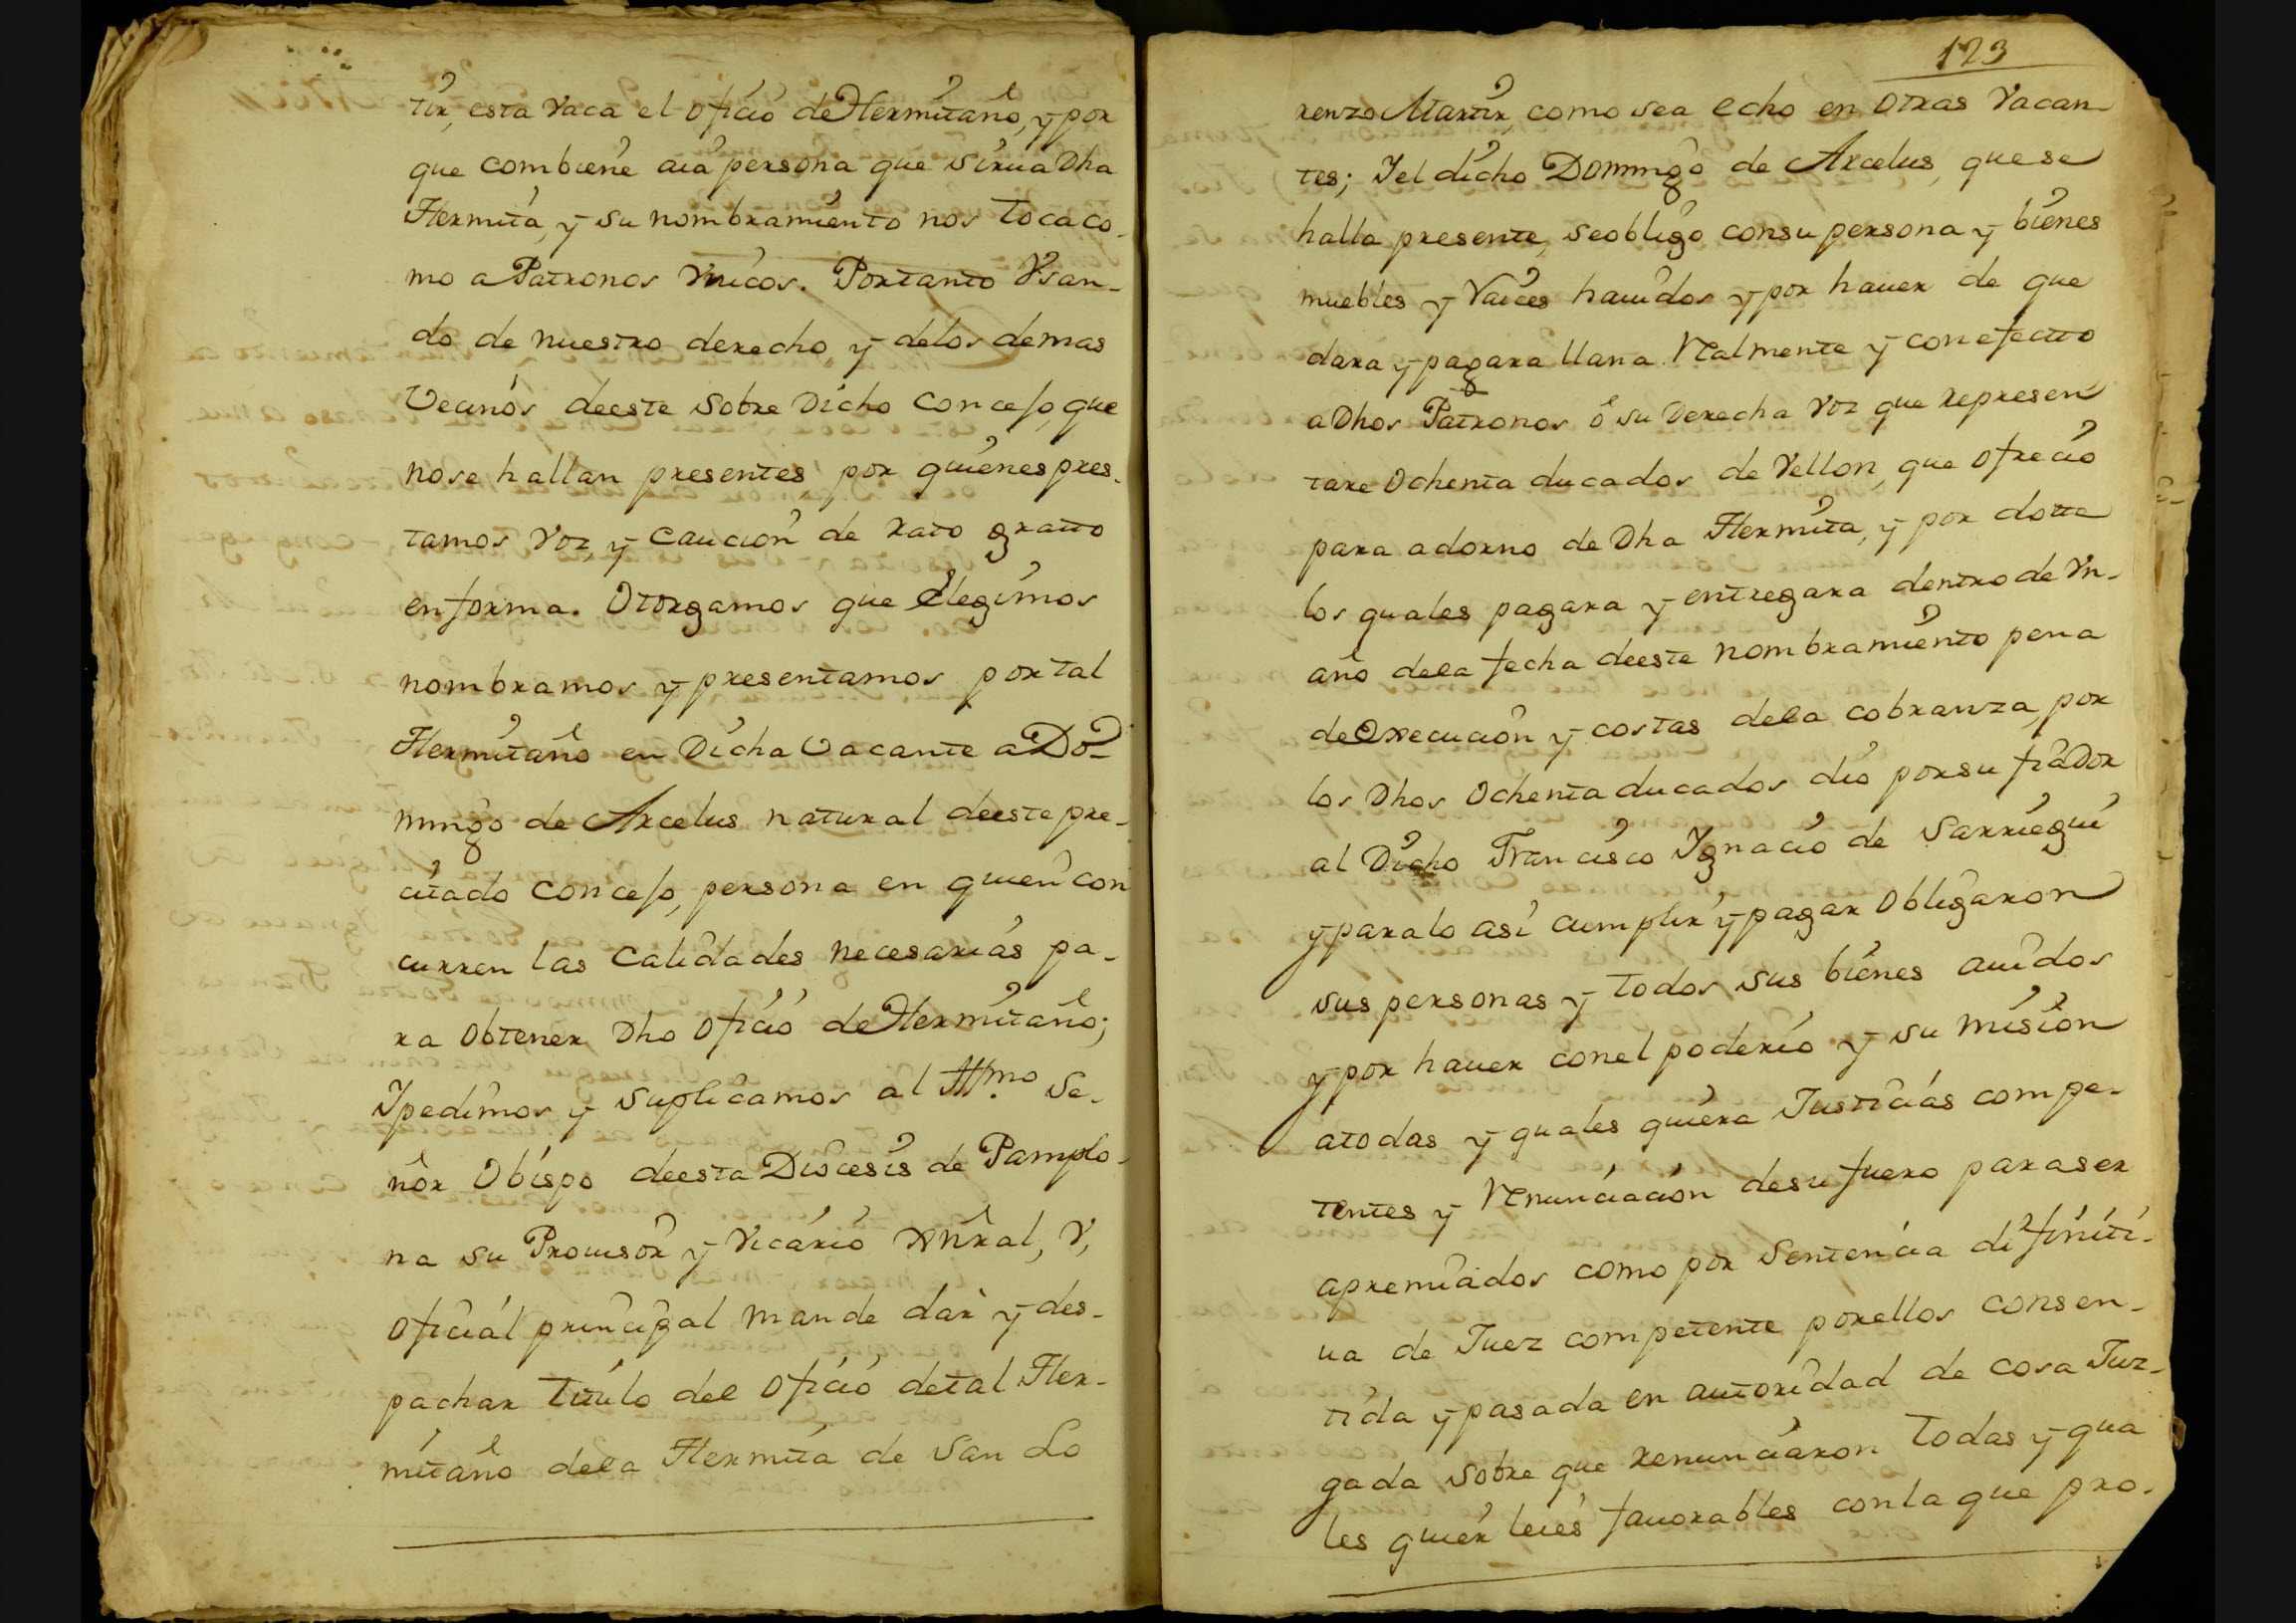 tir, esta vaca el oficio de Hermitaño, y por
que combiene aia persona que sirua Dha
Hermita, y su nombramiento nos toca co-
mo a Patronos Vnicos. Portanto Vsan-
do de nuestro derecho, y delos demas
Vecinos deeste sobre Dicho Concejo, que
nose hallan presentes, por quienes pres-
tamos voz, y caucion de rato gratto
enforma. Otorgamos que elegimos
nombramos y presentamos por tal
Hermitaño en Dicha Vacante a Do-
mingo de Arcelus natural deeste pre-
citado concejo, persona en quien con
curren las calidades necesarias pa-
ra obtener Dho oficio de Hermitaño;
Ypedimos y suplicamos al Illmo. Se-
ñor Obispo deesta Diocesis de Pamplo-
na su Prouisor y Vicario Xnral, V,
oficial principal mande dar y des-
pachar titulo del oficio detal Her-
mitaño dela Hermita de San Lo
123
renzo Martir, como sea echo en otras Vacan-
tes; Yel dicho Domingo de Arcelus, quese
halla presente, seobligo consu persona y bienes
muebles y Raices hauidos y por hauer de que
dara y pagara llana Realmente y conefectto
aDhos Patronos ó su Derecha Voz que represen
tare Ochenta ducados de Vellon, que ofrecio
para adorno de Dha Hermita, y por dotte
los quales pagara y entregara dentro de Vn-
año dela fecha deeste nombramiento pena
deexecucion y costas dela cobranza, por
los Dhos Ochenta ducados dio porsu fiaDor
al Dicho Francisco Ygnacio de Sarriegui
yparalo asi cumplir y pagar Obligaron
sus personas y todos sus bienes auidos
y por hauer conel poderio y su mision
atodas y quales quiera Justicias compe-
tentes y Renunciacion desu fuero paraser
apremiados como por Sentencia difiniti-
ua de Juez competente porellos consen-
tida y pasada en autoridad de cosa Juz-
gada sobre que renunciaron todas y qua
les quier leies fauorables conla que pro-